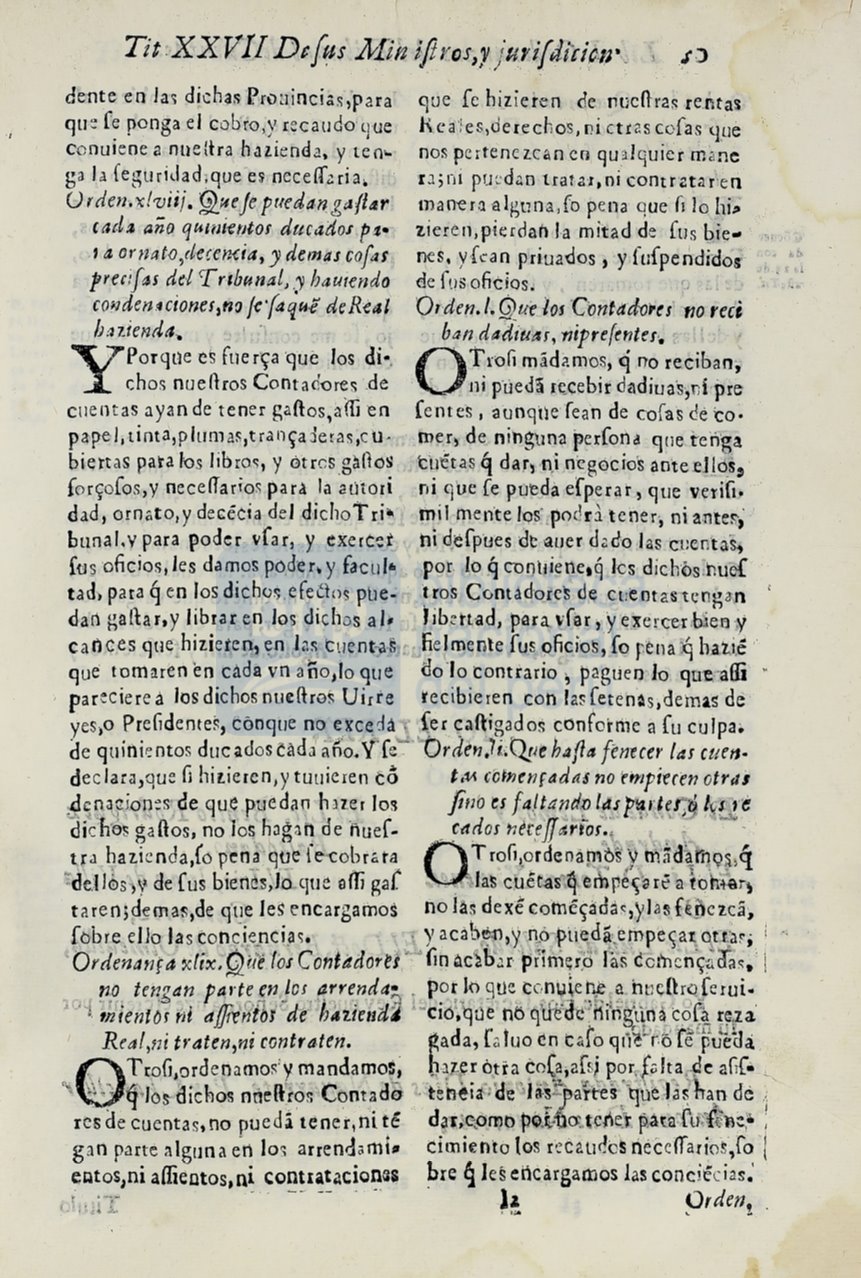 Tit XXVII De sus Ministros, y jurisdicion
50
dente en las dichas Prouincias, para
que se ponga el cobro, y recaudo que
conuiene a nuestra hazienda, y ten-
ga la seguridad, que es necessaria.
Orden. xlviij. Que se puedan gastar
cada año quinientos ducados pa-
ra ornato, decencia, y demas cosas
precisas del Tribunal, y hauiendo
condenaciones, no se saquẽ de Real
hazienda.
Y Porque es fuerça que los di-
chos nuestros Contadores de
cuentas ayan de tener gastos, assi en
papel, tinta, plumas, trançaderas, cu-
biertas para los libros, y otros gastos
forçosos, y necessarios para la autori
dad, ornato, y decẽcia del dicho Tri-
bunal. y para poder vsar, y exercer
sus oficios, les damos poder, y facul-
tad, para q̃ en los dichos efectos pue-
dan gastar, y librar en los dichos al-
cances que hizieren, en las cuentas
que tomaren en cada vn año, lo que
pareciere a los dichos nuestros Uirre
yes, o Presidentes, conque no exceda
de quinientos ducados cada año. Y se
declara, que si hizieren, y tuuieren cõ
denaciones de que puedan hazer los
dichos gastos, no los hagan de nues-
tra hazienda, so pena que se cobrara
dellos, y de sus bienes, lo que assi gas
taren; demas, de que les encargamos
sobre ello las conciencias.
Ordenança xlix. Que los Contadores
no tengan parte en los arrenda-
mientos ni assientos de hazienda
Real, ni traten, ni contraten.
OTrosi, ordenamos y mandamos,
q̃ los dichos nuestros Contado
res de cuentas, no puedã tener, ni tẽ
gan parte alguna en los arrendami-
entos, ni assientos, ni contrataciones
que se hizieren de nuestras rentas
Reales, derechos, ni otras cosas que
nos pertenezcan en qualquier mane
ra; ni puedan tratar, ni contratar en
manera alguna, so pena que si lo hi-
zieren, pierdan la mitad de sus bie-
nes, y sean priuados, y suspendidos
de sus oficios.
Orden. l. Que los Contadores no reci
ban dadiuas, ni presentes.
OTrosi mãdamos, q̃ no reciban,
ni puedã recebir dadiuas, ni pre
sentes, aunque sean de cosas de co-
mer, de ninguna persona que tenga
cuẽtas q̃ dar, ni negocios ante ellos,
ni que se pueda esperar, que verisi-
mil mente los podrà tener, ni antes,
ni despues de auer dado las cuentas,
por lo q̃ conuiene, q̃ los dichos nues
tros Contadores de cuentas tengan
libertad, para vsar, y exercer bien y
fielmente sus oficios, so pena q̃ haziẽ
do lo contrario, paguen lo que assi
recibieren con las setenas, demas de
ser castigados conforme a su culpa.
Orden. li. Que hasta fenecer las cuen-
tas començadas no empiecen otras
sino es faltando las partes, ó los re
cados necessarios.
OTrosi, ordenamos y mãdamos, q̃
las cuẽtas q̃ empeçarẽ a tomar,
no las dexẽ comẽçadas, y las fenezcã,
y acaben, y no puedã empeçar otras,
sin acabar primero las començadas,
por lo que conuiene a nuestro serui-
cio, que no quede ninguna cosa reza
gada, saluo en caso que no se pueda
hazer otra cosa, assi por falta de asis-
tencia de las partes que las han de
dar, como por no tener para su fene-
cimiento los recaudos necessarios, so
bre q̃ les encargamos las conciẽcias.
I2
Orden,